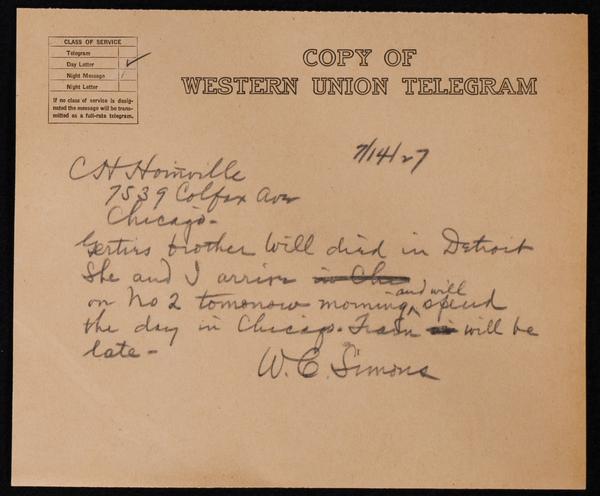 CLASS OF SERVICE
Telegram
Day Letter ✓
Night Message
Night Letter
If no class of service is desig-
nated the message will be trans-
mitted as a full-rate telegram.
COPY OF
WESTERN UNION TELEGRAM
7/14/27
C H Hoinville
7539 Colfax Ave
Chicago-
Gerties brother Will died in Detroit
She and I arrive in Chi
on No 2 tomorrow morning and will spend
the day in Chicago. Train is will be
late-
W. E. Simons